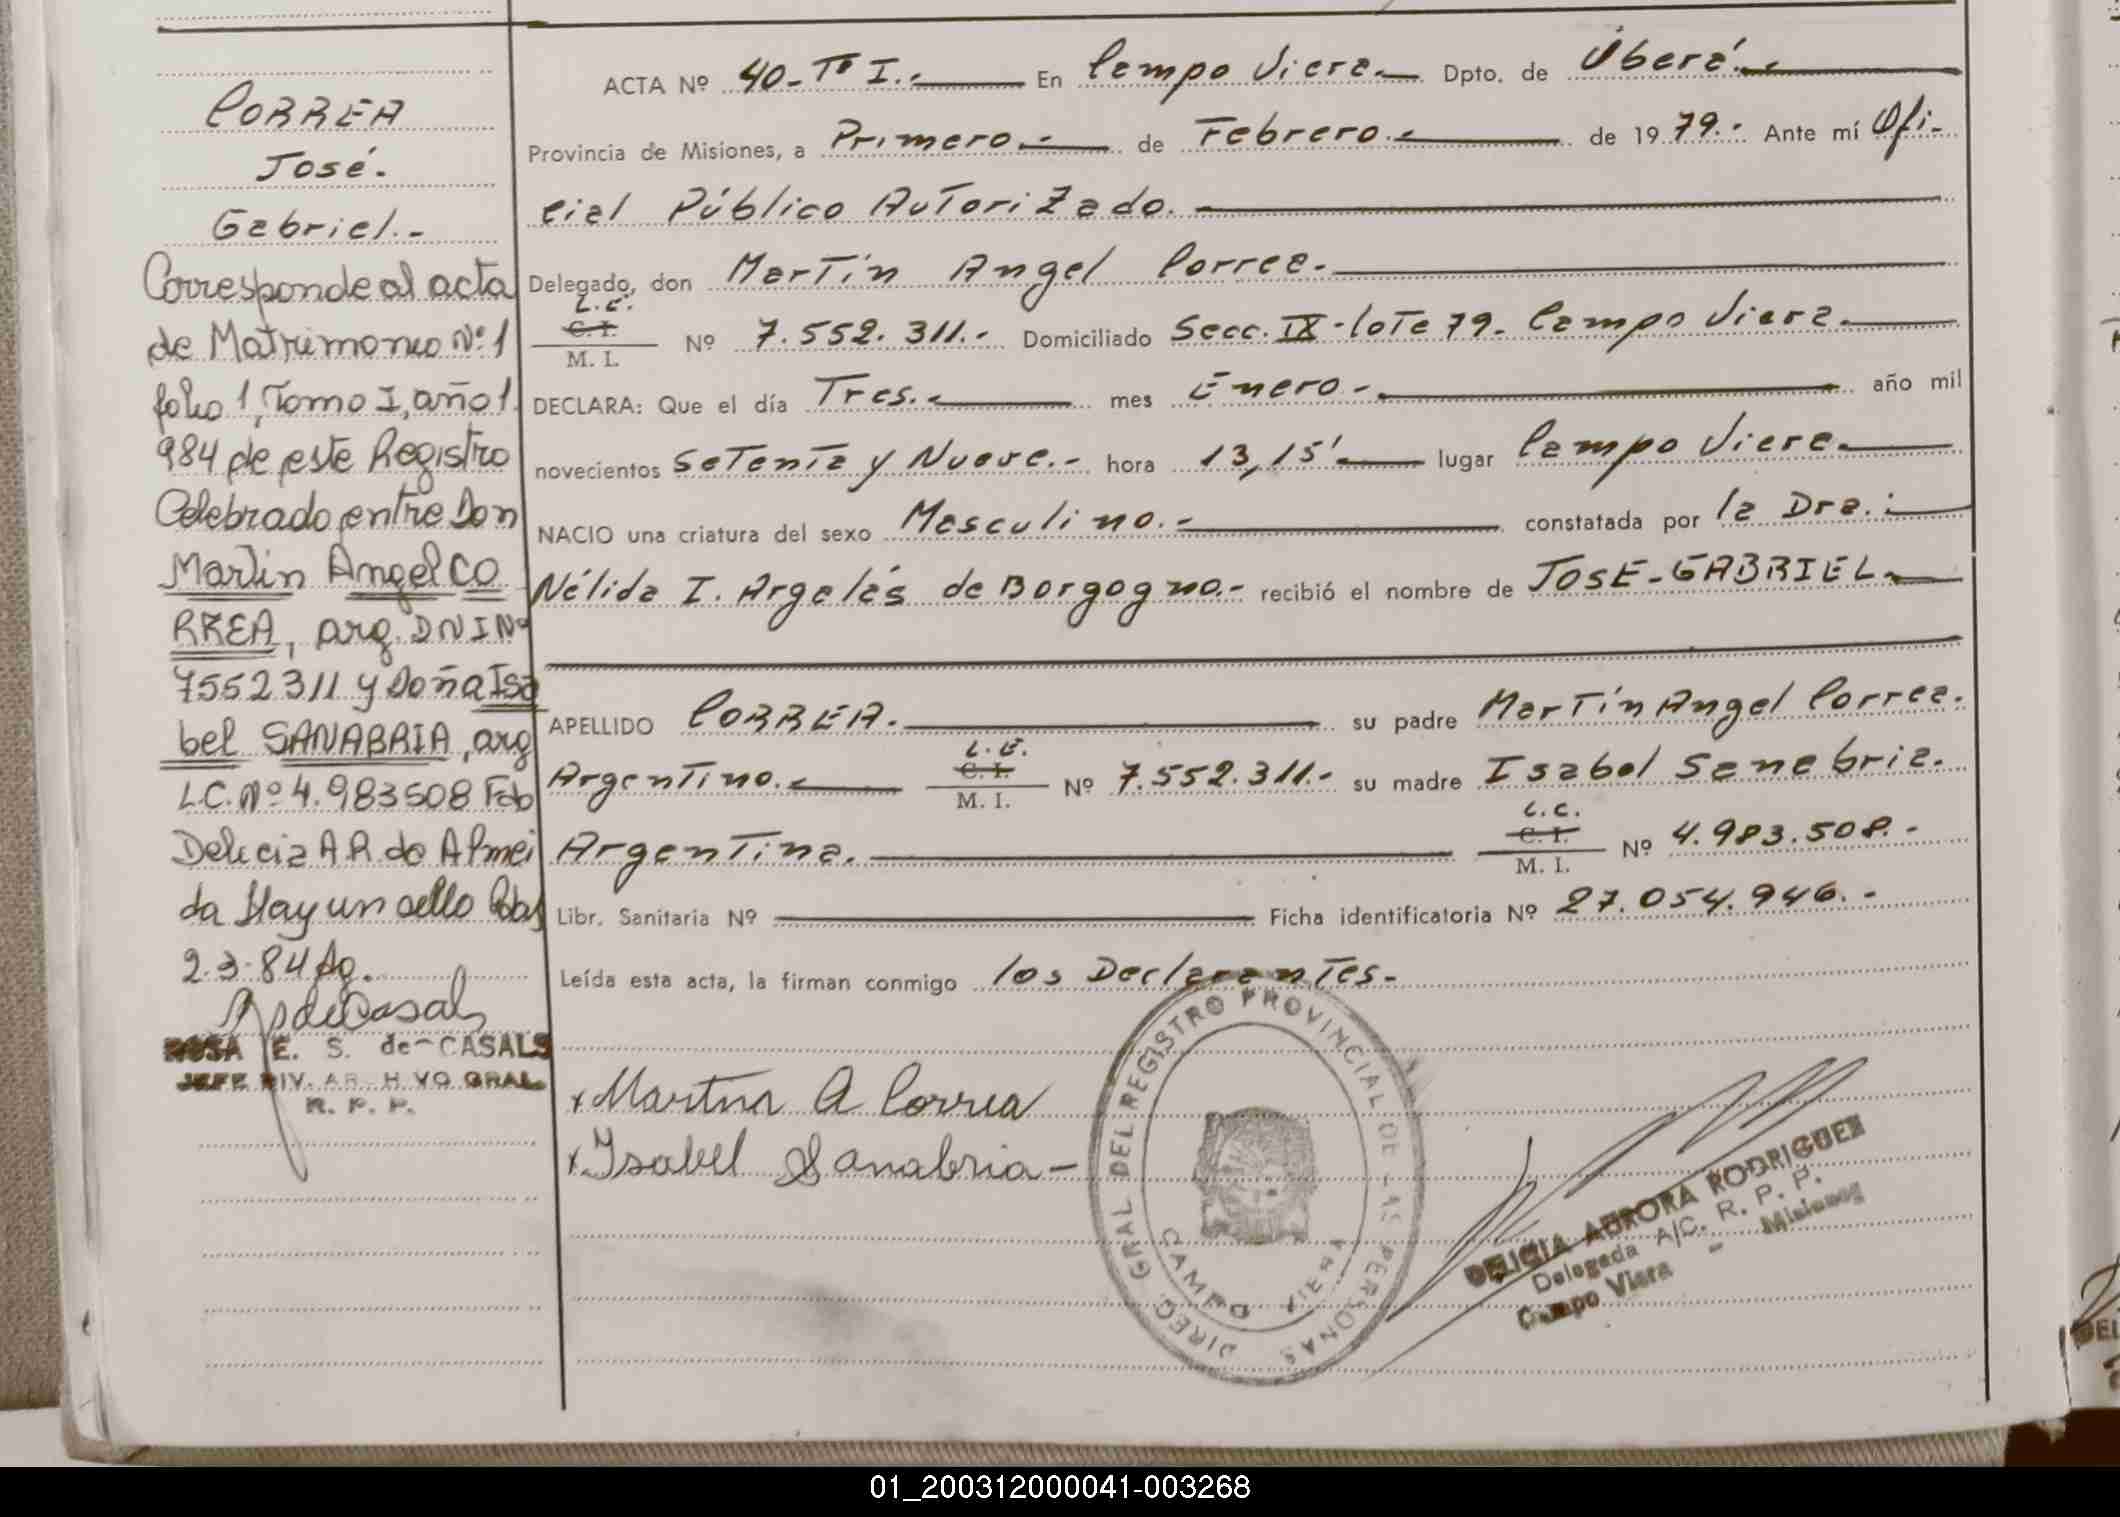 CORREA
José.
Gabriel.-
Corresponde al acta
de Matrimonio Nº 1
folio 1, Tomo I, año 1.
984 de este Registro
Celebrado entre Don
Martin Angel CO
RREA, arg. DNI Nº
7552311 y Doña Isa
bel SANABRIA, arg
L.C. Nº 4.983508 Fdo
Delicia A R de Almei
da Hay un sello Pdas
2.3.84 Ag.
ROSA E. S. de CASALS
JEFE DIV. ARCHIVO GRAL.
R. P. P.
ACTA Nº 40-Tº I.- En Campo Viera.- Dpto. de Oberá.-
Provincia de Misiones, a Primero.- de Febrero.- de 1979.- Ante mí Ofi-
cial Público Autorizado.-
Delegado, don Martín Angel Correa.-
L.E.
C. I.
M. I.
Nº 7.552.311.- Domiciliado Secc. IX-lote 79. Campo Viera.-
DECLARA: Que el día Tres.- mes Enero.- año mil
novecientos Setenta y Nueve.- hora 13,15' lugar Campo Viera.-
NACIO una criatura del sexo Masculino.- constatada por la Dra.:
Nélida I. Argalás de Borgogno.- recibió el nombre de JOSE-GABRIEL.-
APELLIDO CORREA.- su padre Martín Angel Correa.
Argentino.-
L.E.
C. I.
M. I.
Nº 7.552.311.- su madre Isabel Sanabria.
Argentina.
L.C.
C. I.
M. I.
Nº 4.983.508.-
Libr. Sanitaria Nº Ficha identificatoria Nº 27.054.946.-
Leída esta acta, la firman conmigo los Declarantes.-
x Martin A Correa
x Isabel Sanabria-
DIREC. GRAL DEL REGISTRO PROVINCIAL DE LAS PERSONAS
CAMPO VIERA
DELICIA AURORA RODRIGUEZ
Delegada A/C. R. P. P.
Campo Viera - Misiones
01_200312000041-003268